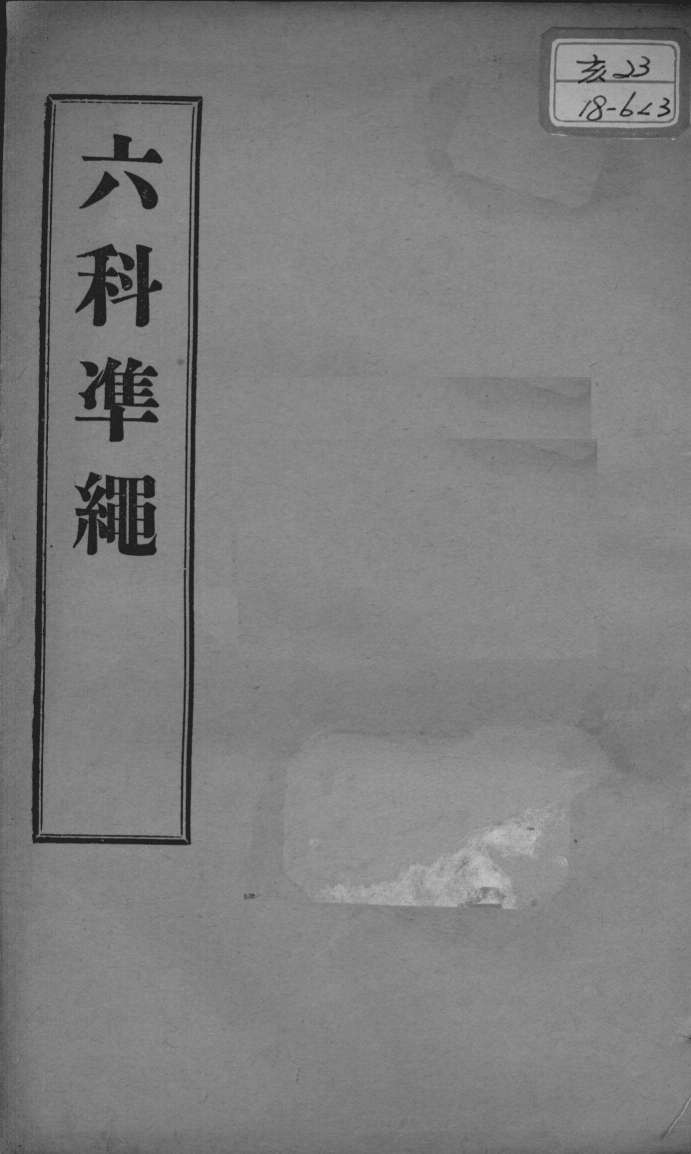 亥23
18-6<3
六科準繩